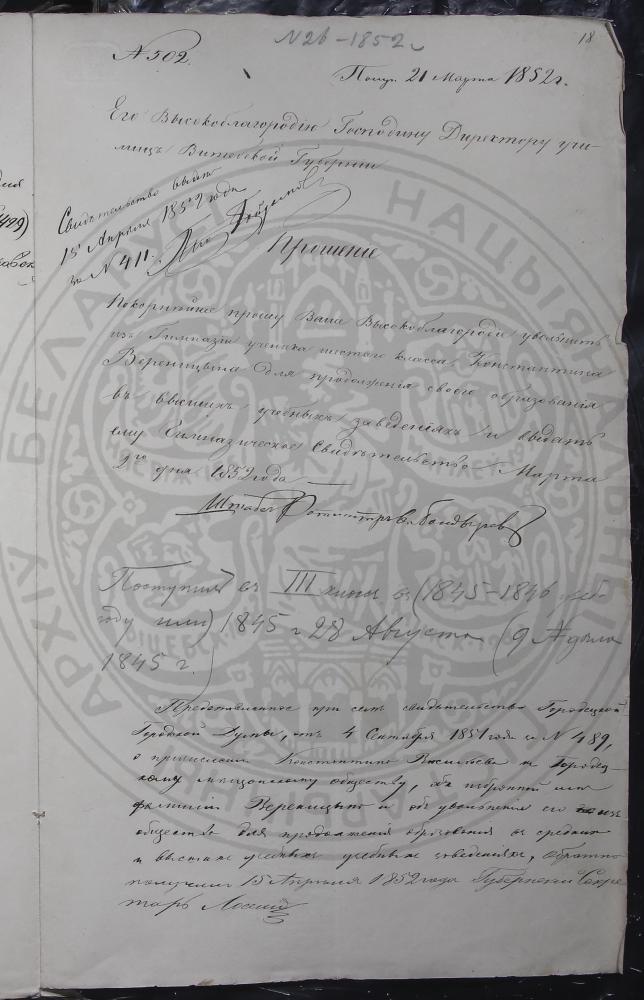 N 26 – 1852 г
18
N 502.
Получ. 21 Марта 1852 г.
Его Высокоблагородію Господину Директору учи-
лищъ Витебской Губерніи
Свидѣтельство выдано
15 Апрѣля 1852 года
за N 411.
Прошеніе
Покорнѣйше прошу Ваше Высокоблагородіе уволить
изъ Гимназіи ученика шестаго класса Константина
Вереницына для продолженія своего образованія
въ высшихъ учебныхъ заведеніяхъ и выдать
ему Гимназическое Свидѣтельство Марта
дня 1852 года
Штабсъ Ротмистръ Болдыревъ
Поступилъ въ III классъ въ (1845–1846 учеб
году или) 1845 г 28 Августа (9 № дѣла
1845 г.)
Представленное при семъ свидѣтельство Городецкой
Городской Думы, отъ 4 Сентября 1851 года за N 489,
о причисленіи Константина Васильева къ Городец-
кому мѣщанскому обществу, объ избранной им
фамиліи Вереницынъ и объ увольненіи его изъ
общества для продолженія образованія въ среднихъ
и высшихъ учебныхъ заведеніяхъ, обратно
получилъ 15 Апрѣля 1852 года Губернскій Секре
тарь
БЕЛАРУСІ
НАЦЫЯ
АРХІЎ